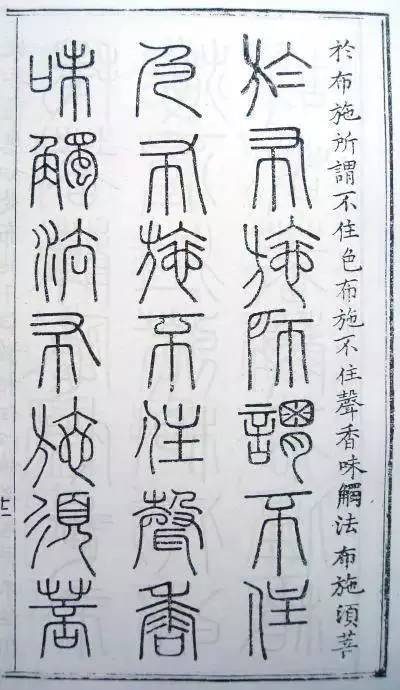 於布施所謂不住色布施不住聲香味觸法布施須菩
於布施所謂不住
色布施不住聲香
味觸法布施須菩